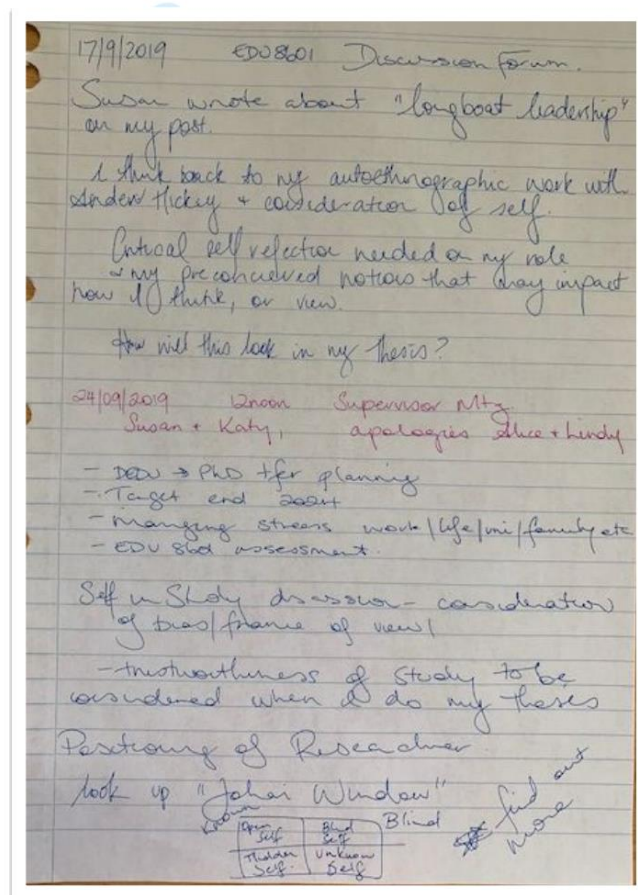 17/9/2019 EDU8601 Discussion Forum.
Susan wrote about "longboat leadership"
on my post.
I think back to my autoethnographic work with
Andrew Hickey + consideration of self.
Critical self reflection needed on my role
+ my preconceived notions that may impact
how I think, or view.
How will this look in my thesis?
24/09/2019 12noon Supervisor Mtg
Susan + Katy, apologies Alice + Lindy
- DEDU → PhD tfer planning
- Target end 2024
- Managing stress work/life/uni/family etc
- EDU 8601 assessment.
Self in Study discussion - consideration
of bias/frame of view/
- trustworthiness of study to be
considered when I do my theses
Positioning of Researcher
look up "Johai Window"
find out
more
Known Blind
Open Self
Blind Self
Hidden Self.
Unknown Self